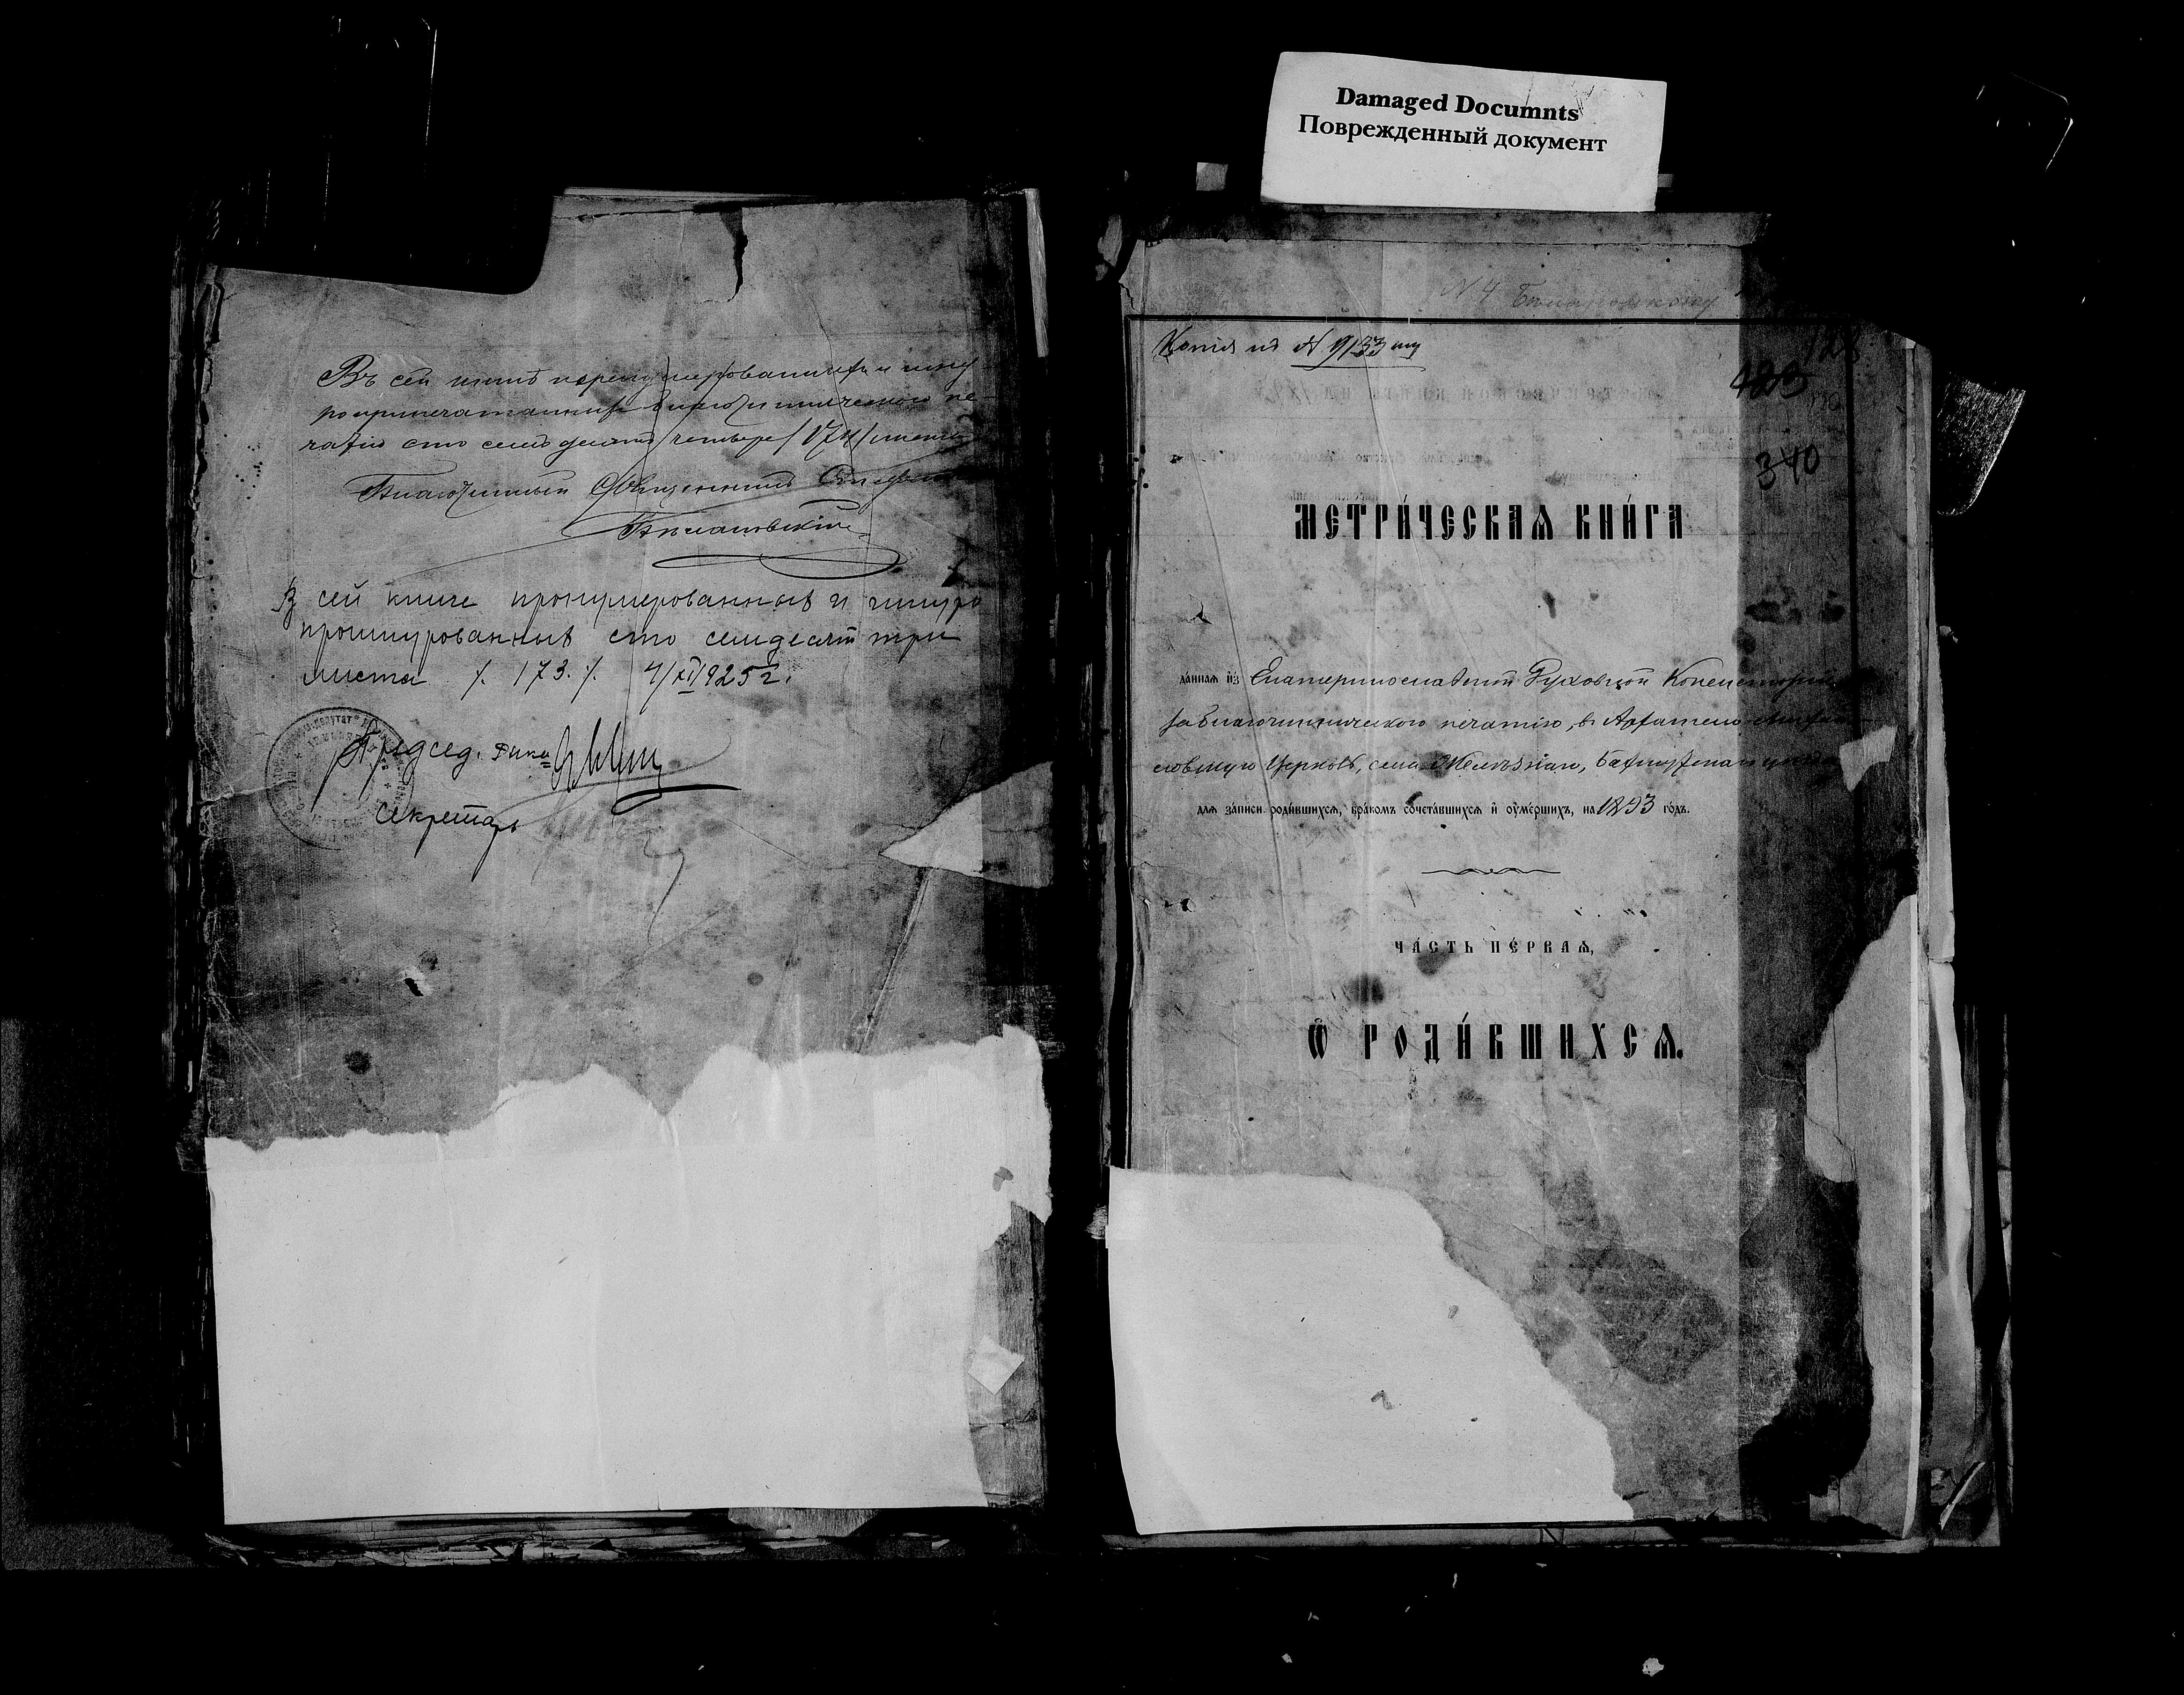 Damaged Documnts
Поврежденный документ
Въ сей книгѣ перенумерованныхъ и шну-
роприпечатанныхъ благочинническою пе-
чатію сто семьдесятъ четыре /174/ листа
Благочинный Священникъ
В сей книге пронумерованных и
прошнурованных сто семдесят три
листа /. 173. /. 4/XI 1925 г.
Председ. Рика
Секретарь
N 4
Копія съ N 9133
123
423
340
МЕТРИ́ЧЕСКАѦ КНИ́ГА
да́ннаѧ и҆з̾ Екатеринославской Духовной Консисторіи
за благочинническою печатію, въ Архангело-Михаи-
ловскую Церковь, села Бахмутскаго уѣзда
длѧ за́писи роди́вшихсѧ, бра́комъ сочета́вшихсѧ и҆ ᲂу҆ме́ршихъ, на 1893 го́дъ.
ЧА́СТЬ ПЕ́РВАѦ,
Ѡ҆ РОДИ́ВШИХСѦ.